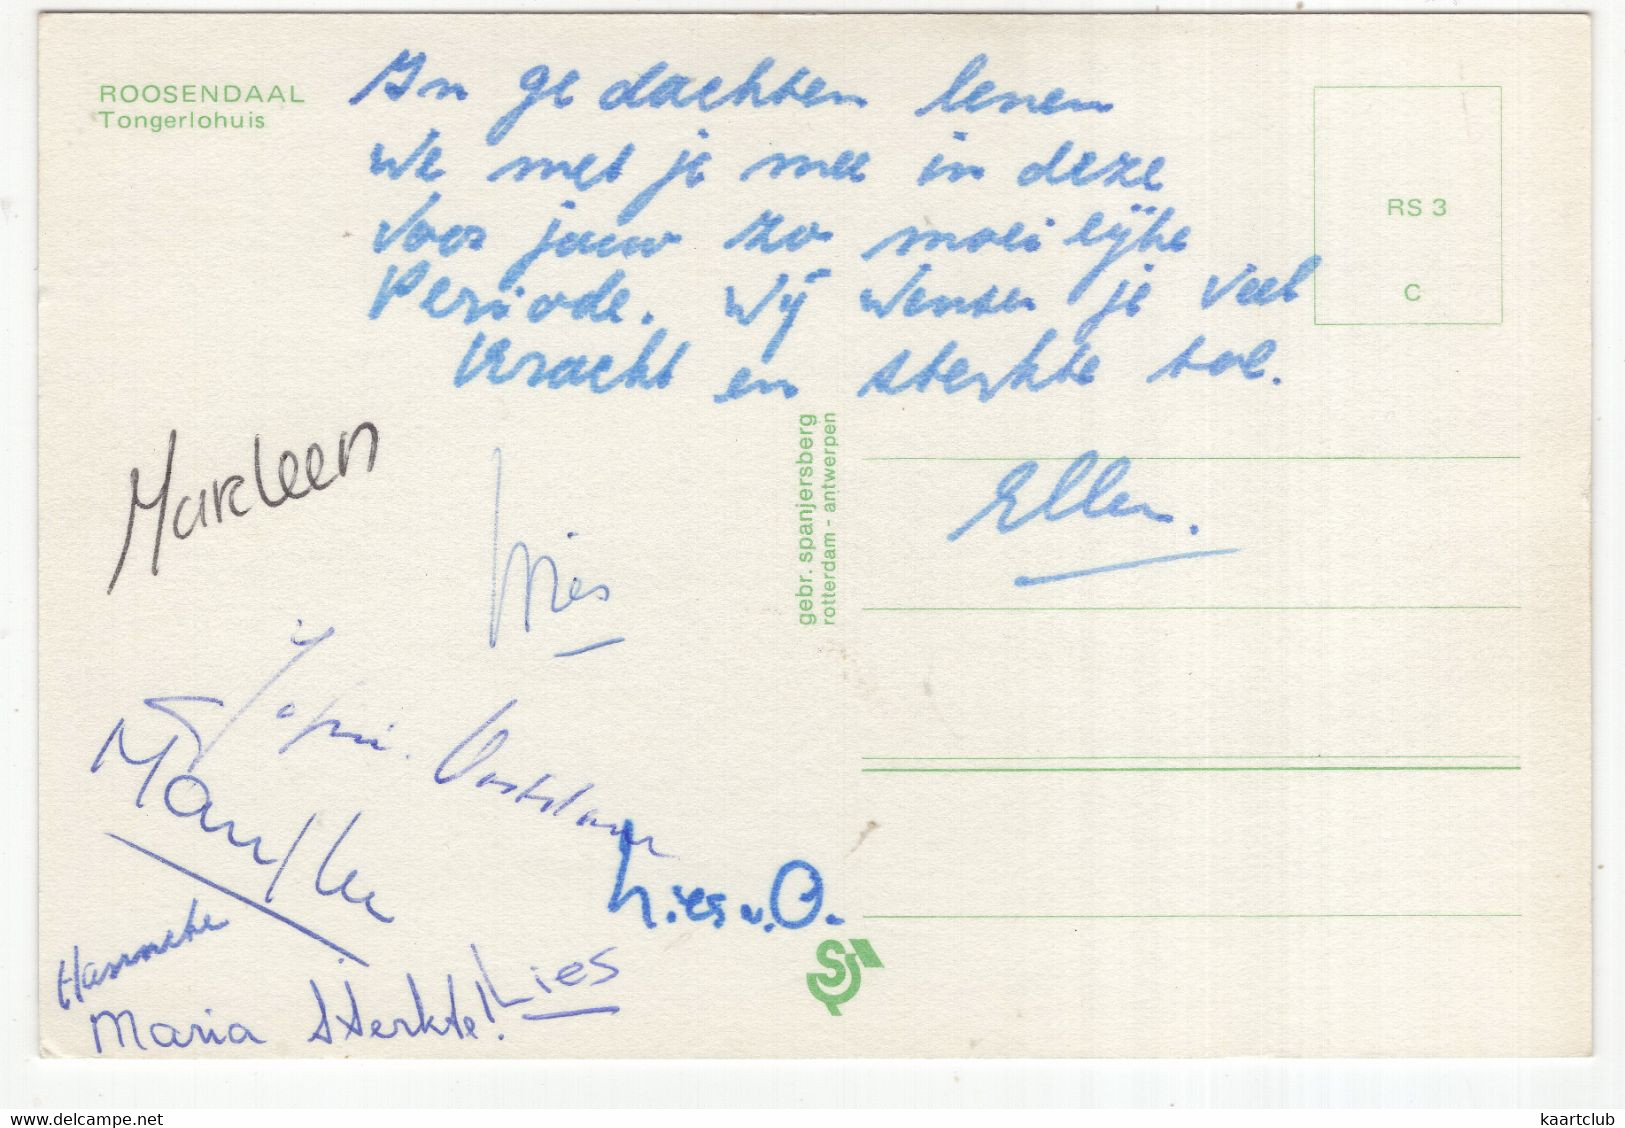 ROOSENDAAL
Tongerlohuis
In gedachten lenen
we met je mee in deze
voor jouw zo moeilijke
Periode. Wij wensen je veel
kracht en sterkte toe.
RS 3
C
gebr. spanjersberg
rotterdam - antwerpen
Ellen.
Marleen
Lies v. O.
Hanneke
Lies
Maria sterkte!
www.delcampe.net
kaartclub